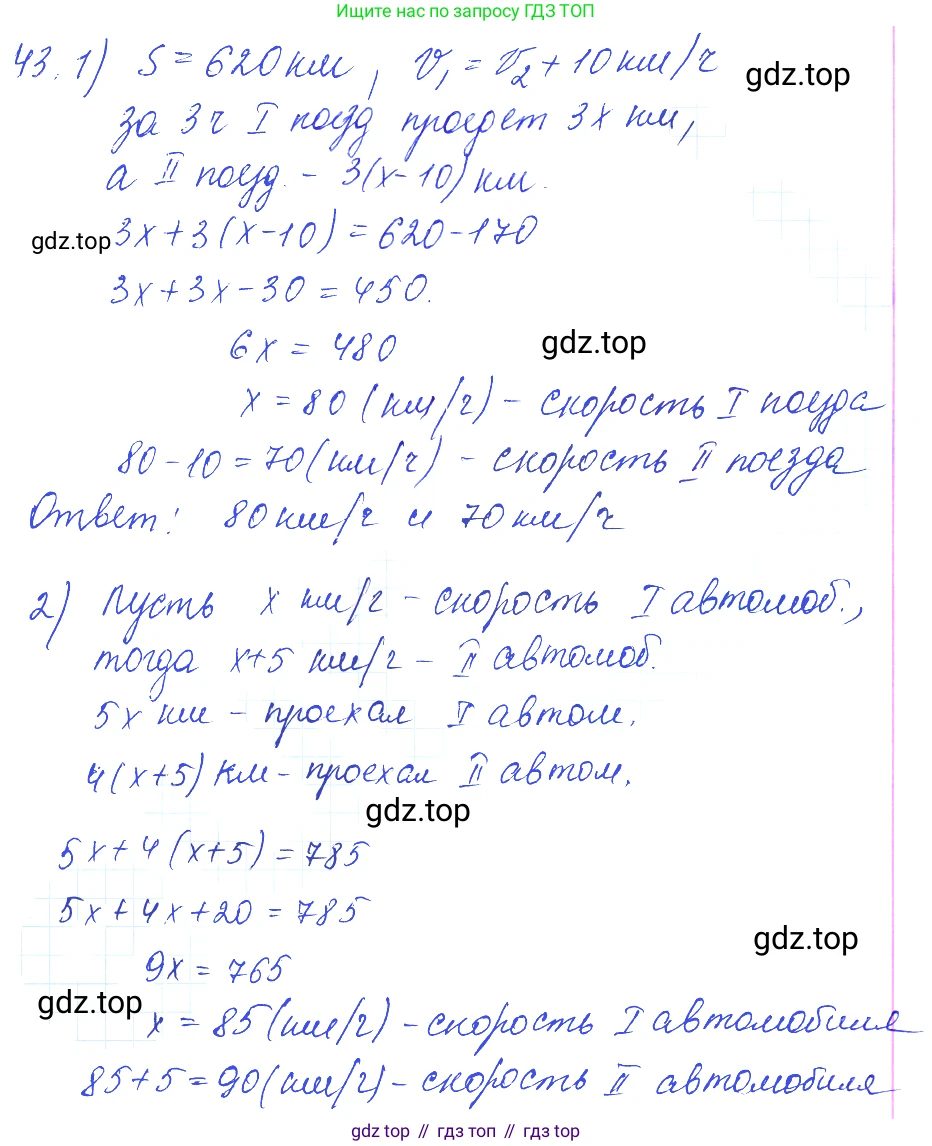 Ищите нас по запросу ГДЗ ТОП
43. 1) S = 620 км, v₁ = v₂ + 10 км/ч
gdz.top
за 3 ч I поезд проедет 3x км,
а II поезд. - 3(x-10) км.
gdz.top 3x + 3(x-10) = 620-170
3x + 3x - 30 = 450.
6x = 480
gdz.top
x = 80 (км/ч) - скорость I поезда
80 - 10 = 70 (км/ч) - скорость II поезда
Ответ: 80 км/ч и 70 км/ч
2) Пусть x км/ч - скорость I автомоб.,
тогда x+5 км/ч - II автомоб.
5x км - проехал I автом.
4(x+5) км - проехал II автом.
gdz.top
5x + 4(x+5) = 785
5x + 4x + 20 = 785
gdz.top
9x = 765
gdz.top
x = 85 (км/ч) - скорость I автомобиля
85 + 5 = 90 (км/ч) - скорость II автомобиля
gdz.top // гдз топ // гдз top